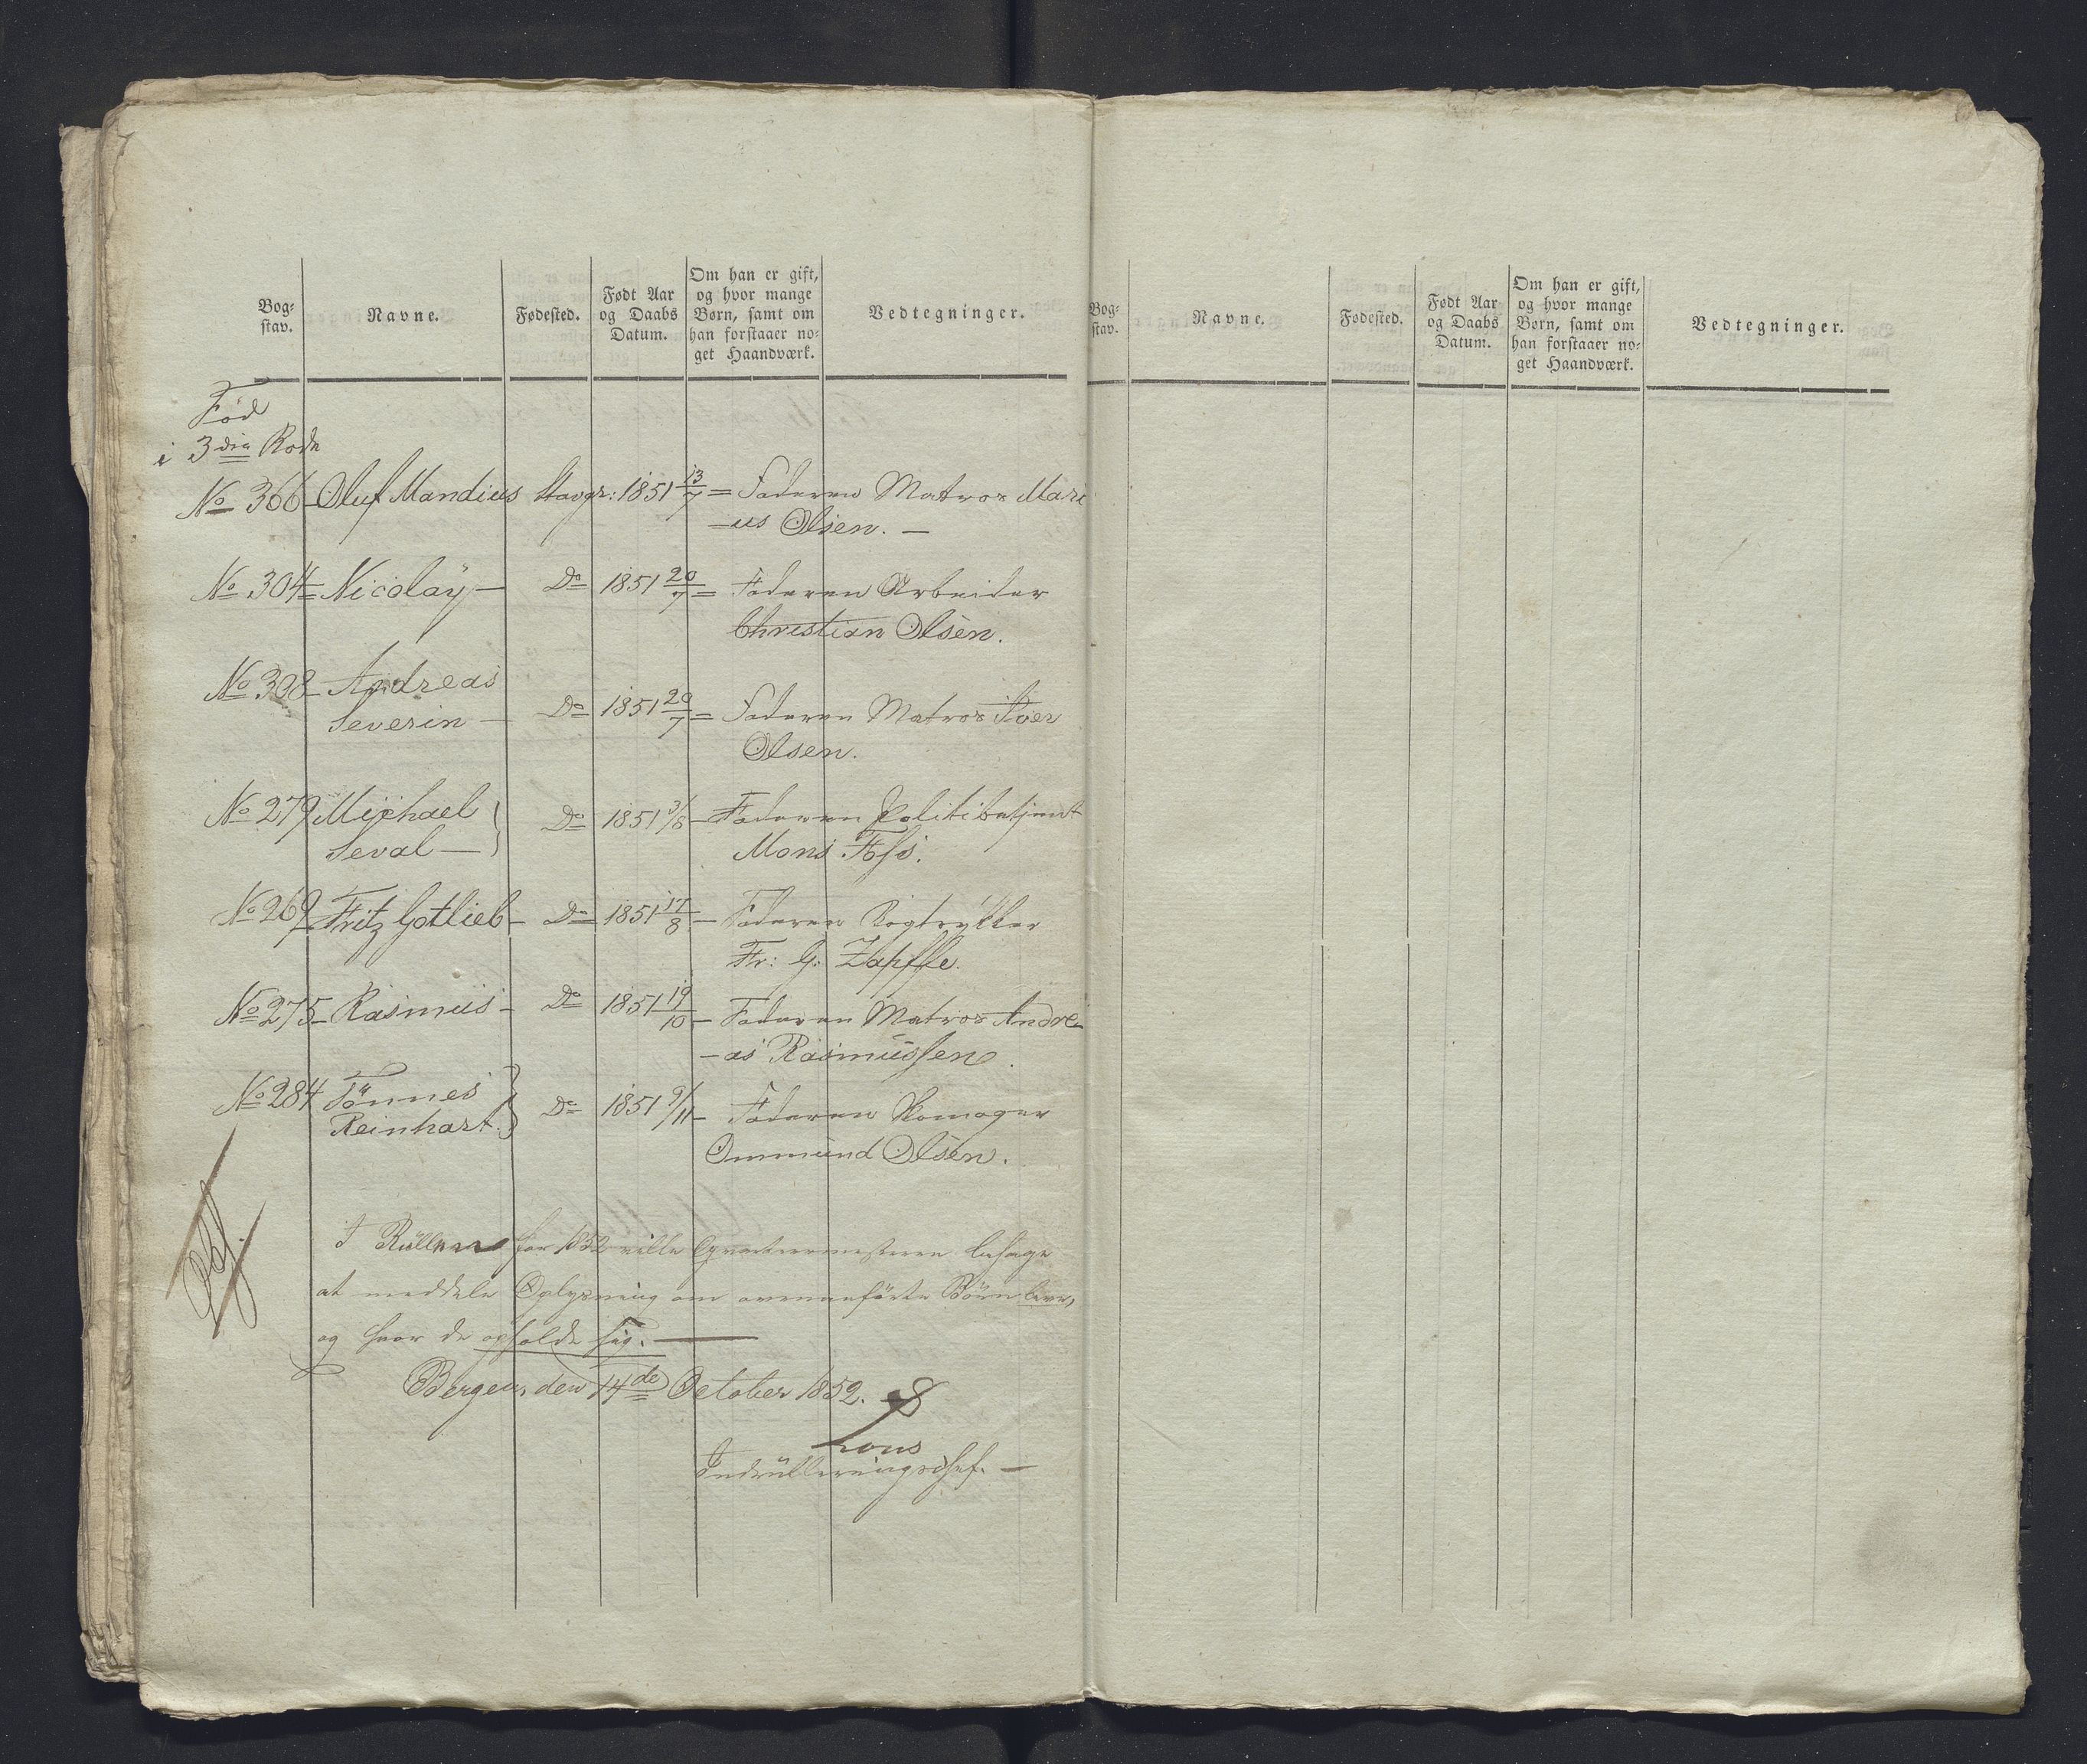 Bog-
stav.
Navne.
Fødested.
Født Aar
og Daabs
Datum.
Om han er gift,
og hvor mange
Børn, samt om
han forstaaer no-
get Haandværk.
Vedtegninger.
Fød
i 3die Rode
No 366 Oluf Mandius Stavgr: 1851 13/7 = Faderen Matros Mari
-us Olsen. —
No 304 = Nicolaÿ — Do 1851 20/7 = Faderen Arbeider
Christian Olsen.
No 308 - Andreas
Severin — Do 1851 20/7 = Faderen Matros Iver
Olsen.
No 279 Michael
Seval — } Do 1851 3/8 — Faderen Politibetjent
Mons Foss.
No 269 Fritz Gotlieb — Do 1851 17/8 — Faderen Bogtrykker
Fr: G: Zapffe.
No 275 - Rasmus - Do 1851 19/10 — Faderen Matros Andre-
-as Rasmussen.
No 284 Tönnes
Reinhart. } Do 1851 9/11 — Faderen Skomager
Ommund Olsen.
I Rullerne for 1852 ville Qvarteermesteren behage
at meddele Oplysning om ovenanførte Børn leve,
og hvor de opholde sig. —
Bergen, den 14de October 1852.
Indrulleringschef. —
Bog-
stav.
Navne.
Fødested.
Født Aar
og Daabs
Datum.
Om han er gift,
og hvor mange
Børn, samt om
han forstaaer no-
get Haandværk.
Vedtegninger.